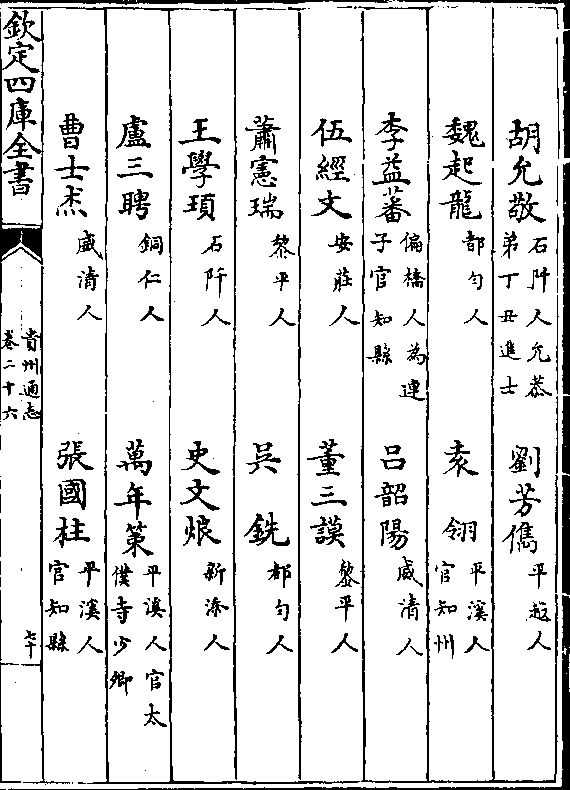 胡允敬 石阡人允恭弟丁丑進士 劉芳儁 平越人
魏起龍 都勻人 袁翎 平溪人官知州
李益蕃 偏橋人為連子官知縣 呂韶陽 威清人
伍經文 安莊人 董三謨 黎平人
蕭憲瑞 黎平人 吳銑 都勻人
王學頊 石阡人 史文烺 新添人
盧三聘 銅仁人 萬年策 平溪人官太僕寺少卿
曹士杰 威清人 張國柱 平溪人官知縣
欽定四庫全書 貴州通志卷二十六 七十